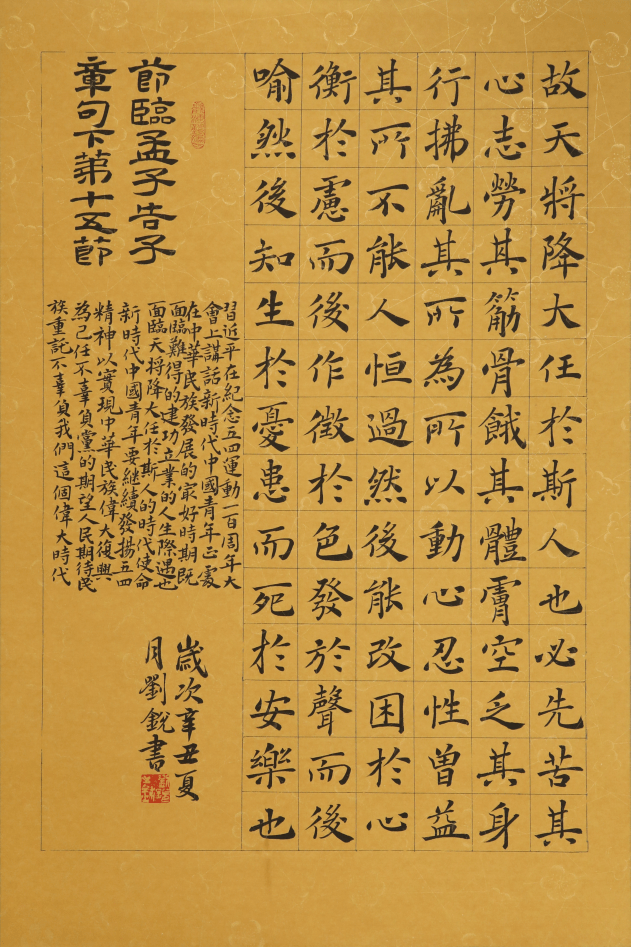 故天將降大任於斯人也必先苦其
心志勞其筋骨餓其體膚空乏其身
行拂亂其所為所以動心忍性曾益
其所不能人恒過然後能改困於心
衡於慮而後作徵於色發於聲而後
喻然後知生於憂患而死於安樂也
節臨孟子告子
章句下第十五節
習近平在紀念五四運動一百周年大
會上講話新時代中國青年正處
在中華民族發展的最好時期既
面臨難得的建功立業的人生際遇也
面臨天將降大任於斯人的時代使命
新時代中國青年要繼續發揚五四
精神以實現中華民族偉大復興
為己任不辜負黨的期望人民期待民
族重託不辜負我們這個偉大時代
歲次辛丑夏
月劉銳書